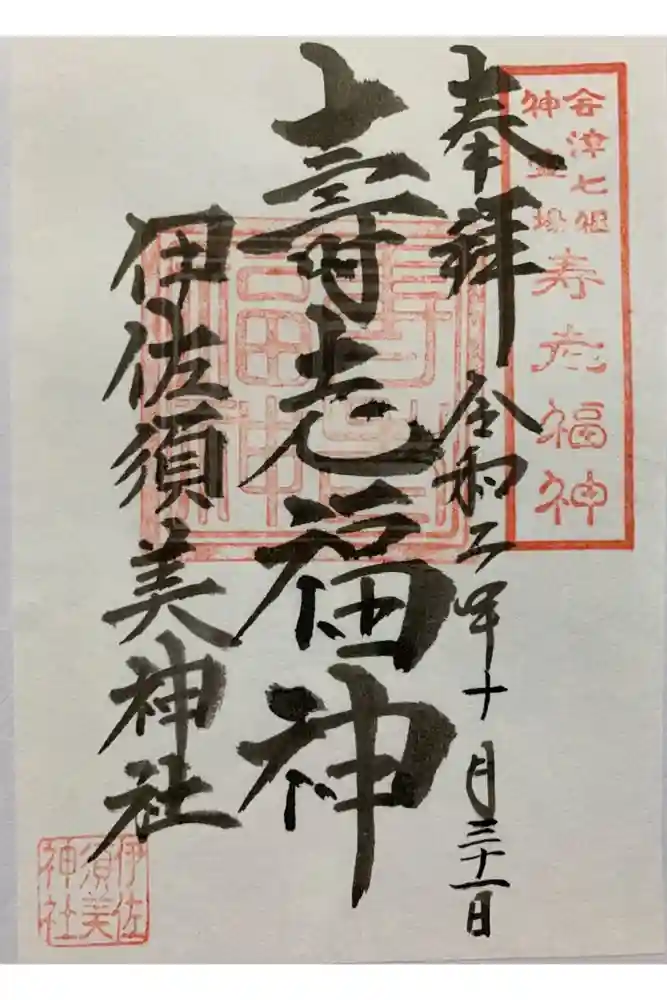 会津七福
神霊場
寿老福神
奉拝
令和二年十月三十一日
壽老福神
寿老
福神
伊佐須美神社
伊佐
須美
神社